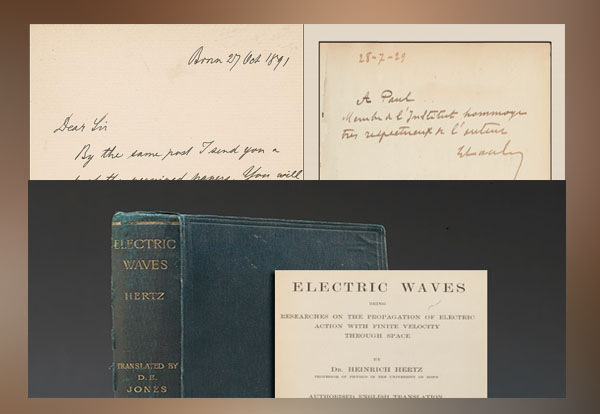 Bonn 27 Oct 1891
Dear Sir
By the same post I send you a
papers. You will
28-7-29
A Paul
Membre de l'Institut hommage
très respectueux de l'auteur
ELECTRIC
WAVES
HERTZ
TRANSLATED BY
D. E.
JONES
ELECTRIC WAVES
BEING
RESEARCHES ON THE PROPAGATION OF ELECTRIC
ACTION WITH FINITE VELOCITY
THROUGH SPACE
BY
DR. HEINRICH HERTZ
PROFESSOR OF PHYSICS IN THE UNIVERSITY OF BONN
AUTHORISED ENGLISH TRANSLATION